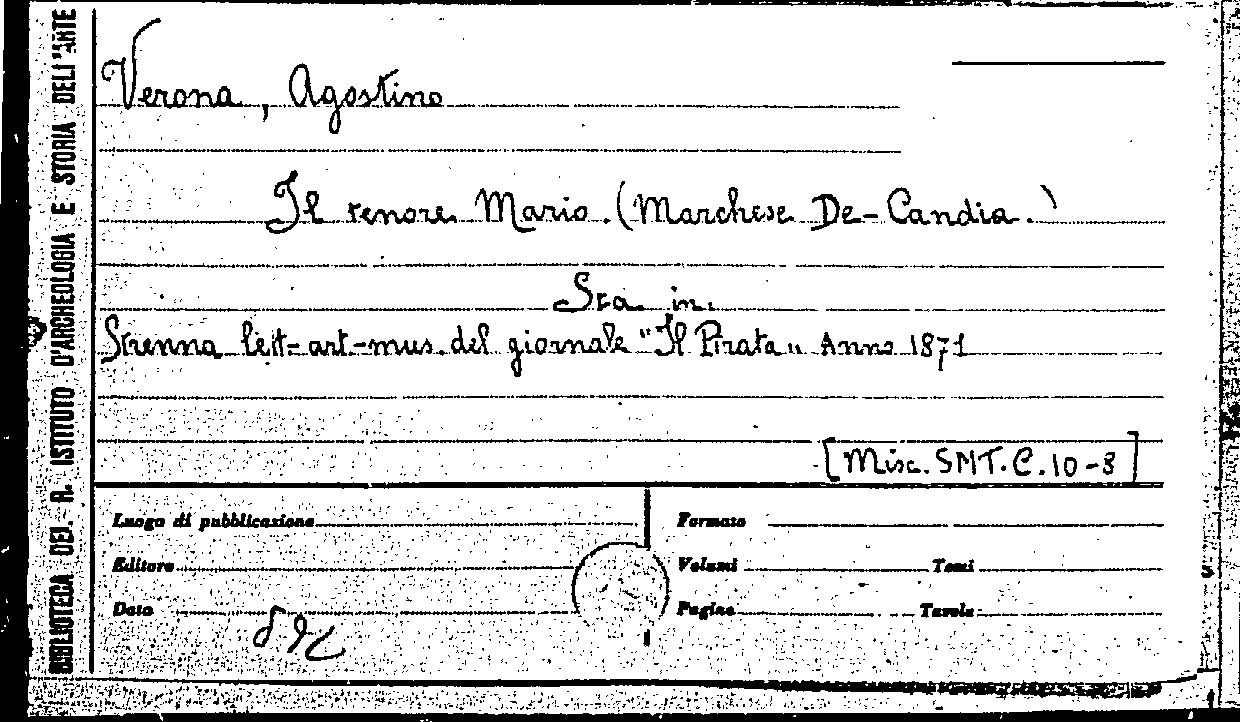 BIBLIOTECA DEL R. ISTITUTO D'ARCHEOLOGIA E STORIA DELL'ARTE
Verona, Agostino
Il tenore Mario. (Marchese De-Candia.)
Sta in:
Strenna lett-art-mus. del giornale "Il Pirata" Anno 1871
[Misc. SMT.C.10-8]
Luogo di pubblicazione
Formato
Editore
Volumi
Tomi
Data
Pagine
Tavole